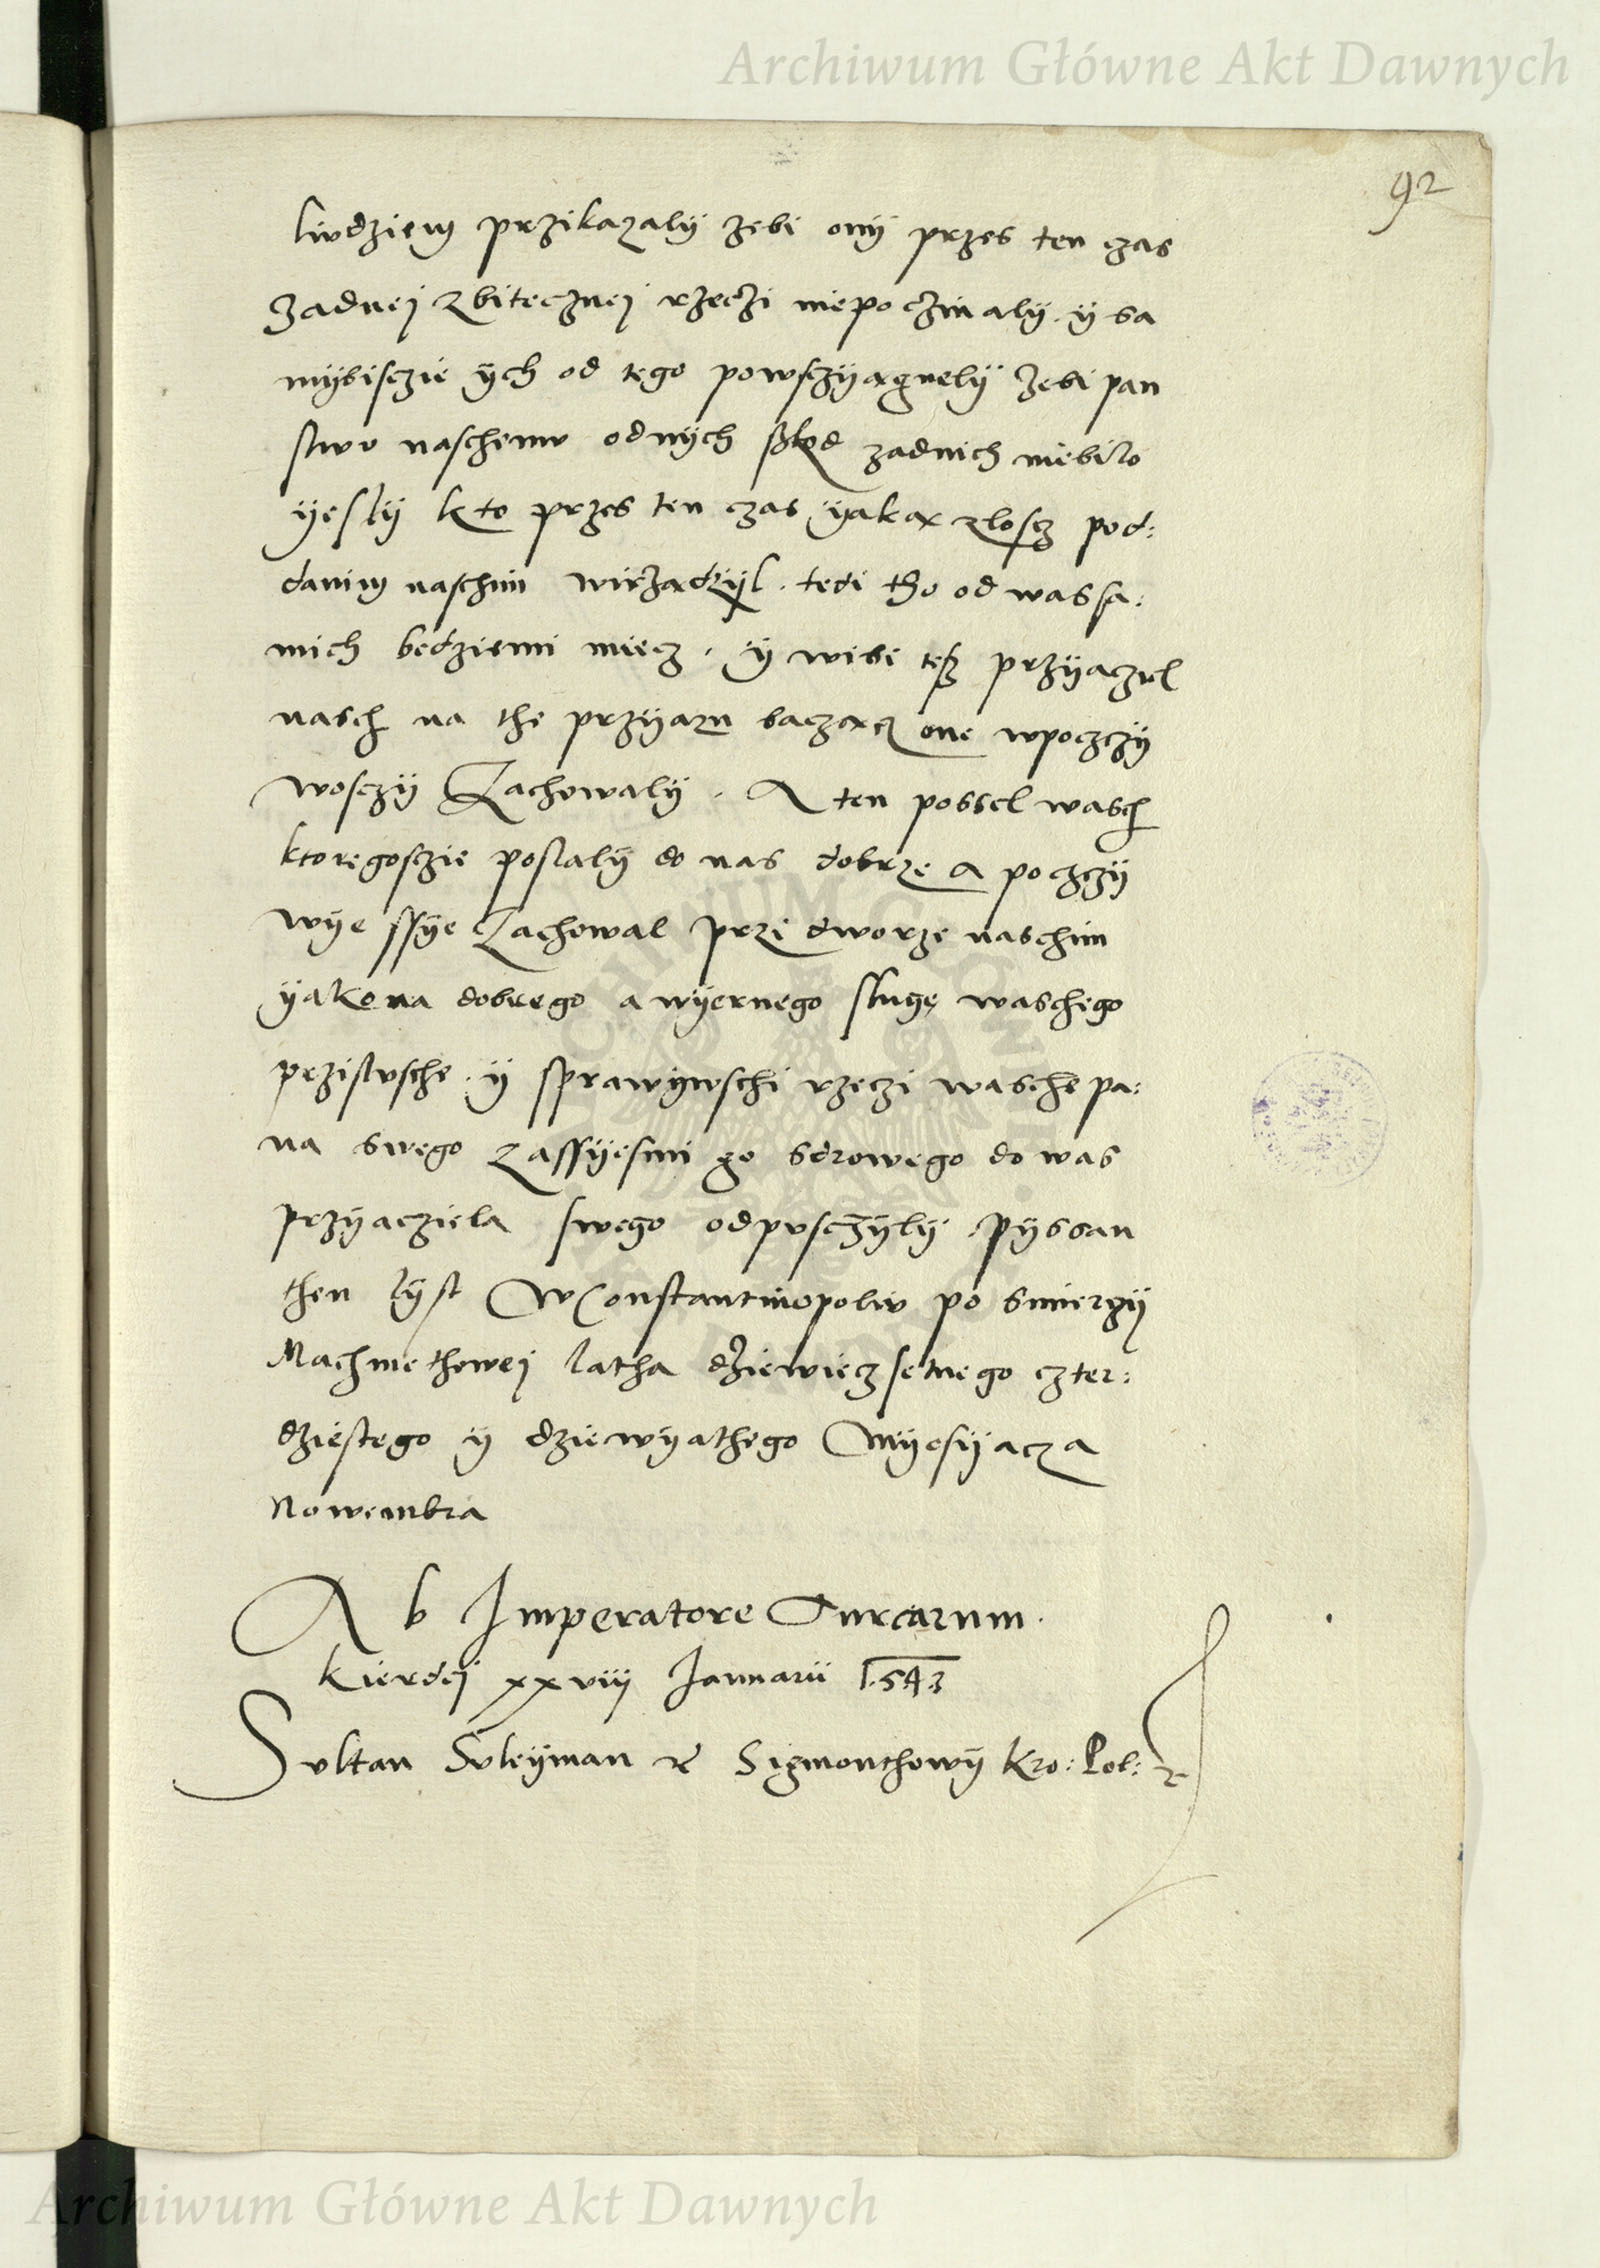 Archiwum Główne Akt Dawnych
92
liudziem przikazaly zebi ony przes ten czas
zadnej zbitecznej rzeczi niepoczinaly. y sa
mybisczie ych od tego powsczyagnely zebi pan
stwu naschemu odnych sskod zadnich niebilo
yesly kto przes ten czas yakax zloscz pod:
danim naschim wirzadzyl. tedi tho od was sa:
mich bedziemi miecz. y wibi tesz przyaczel
nasch na the przyazn baczacz one wpoczczy
wosczy zachowaly. A ten possel wasch
ktoregosczie poslaly do nas dobrze a poczczy
wye ssye zachowal prze dworze naschim
yako na dobrego a wyernego slugę waschego
przislusche. y sprawywschi rzeczi wasche pa:
na swego zassyesmi go sdrowego do was
przyacziela swego odpusczyly. pyssan
then lyst W Constantinopoliu po smierczy
Machmethowej latha dziewieczsetnego czter:
dziestego y dziewyathego Myesyacza
Nowembra
Ab Imperatore Turcarum.
Kierdej xxviij Januarii 1543
Sultan Suleyman &c Sigmonthowy Kro: Pol: &c
Archiwum Główne Akt Dawnych